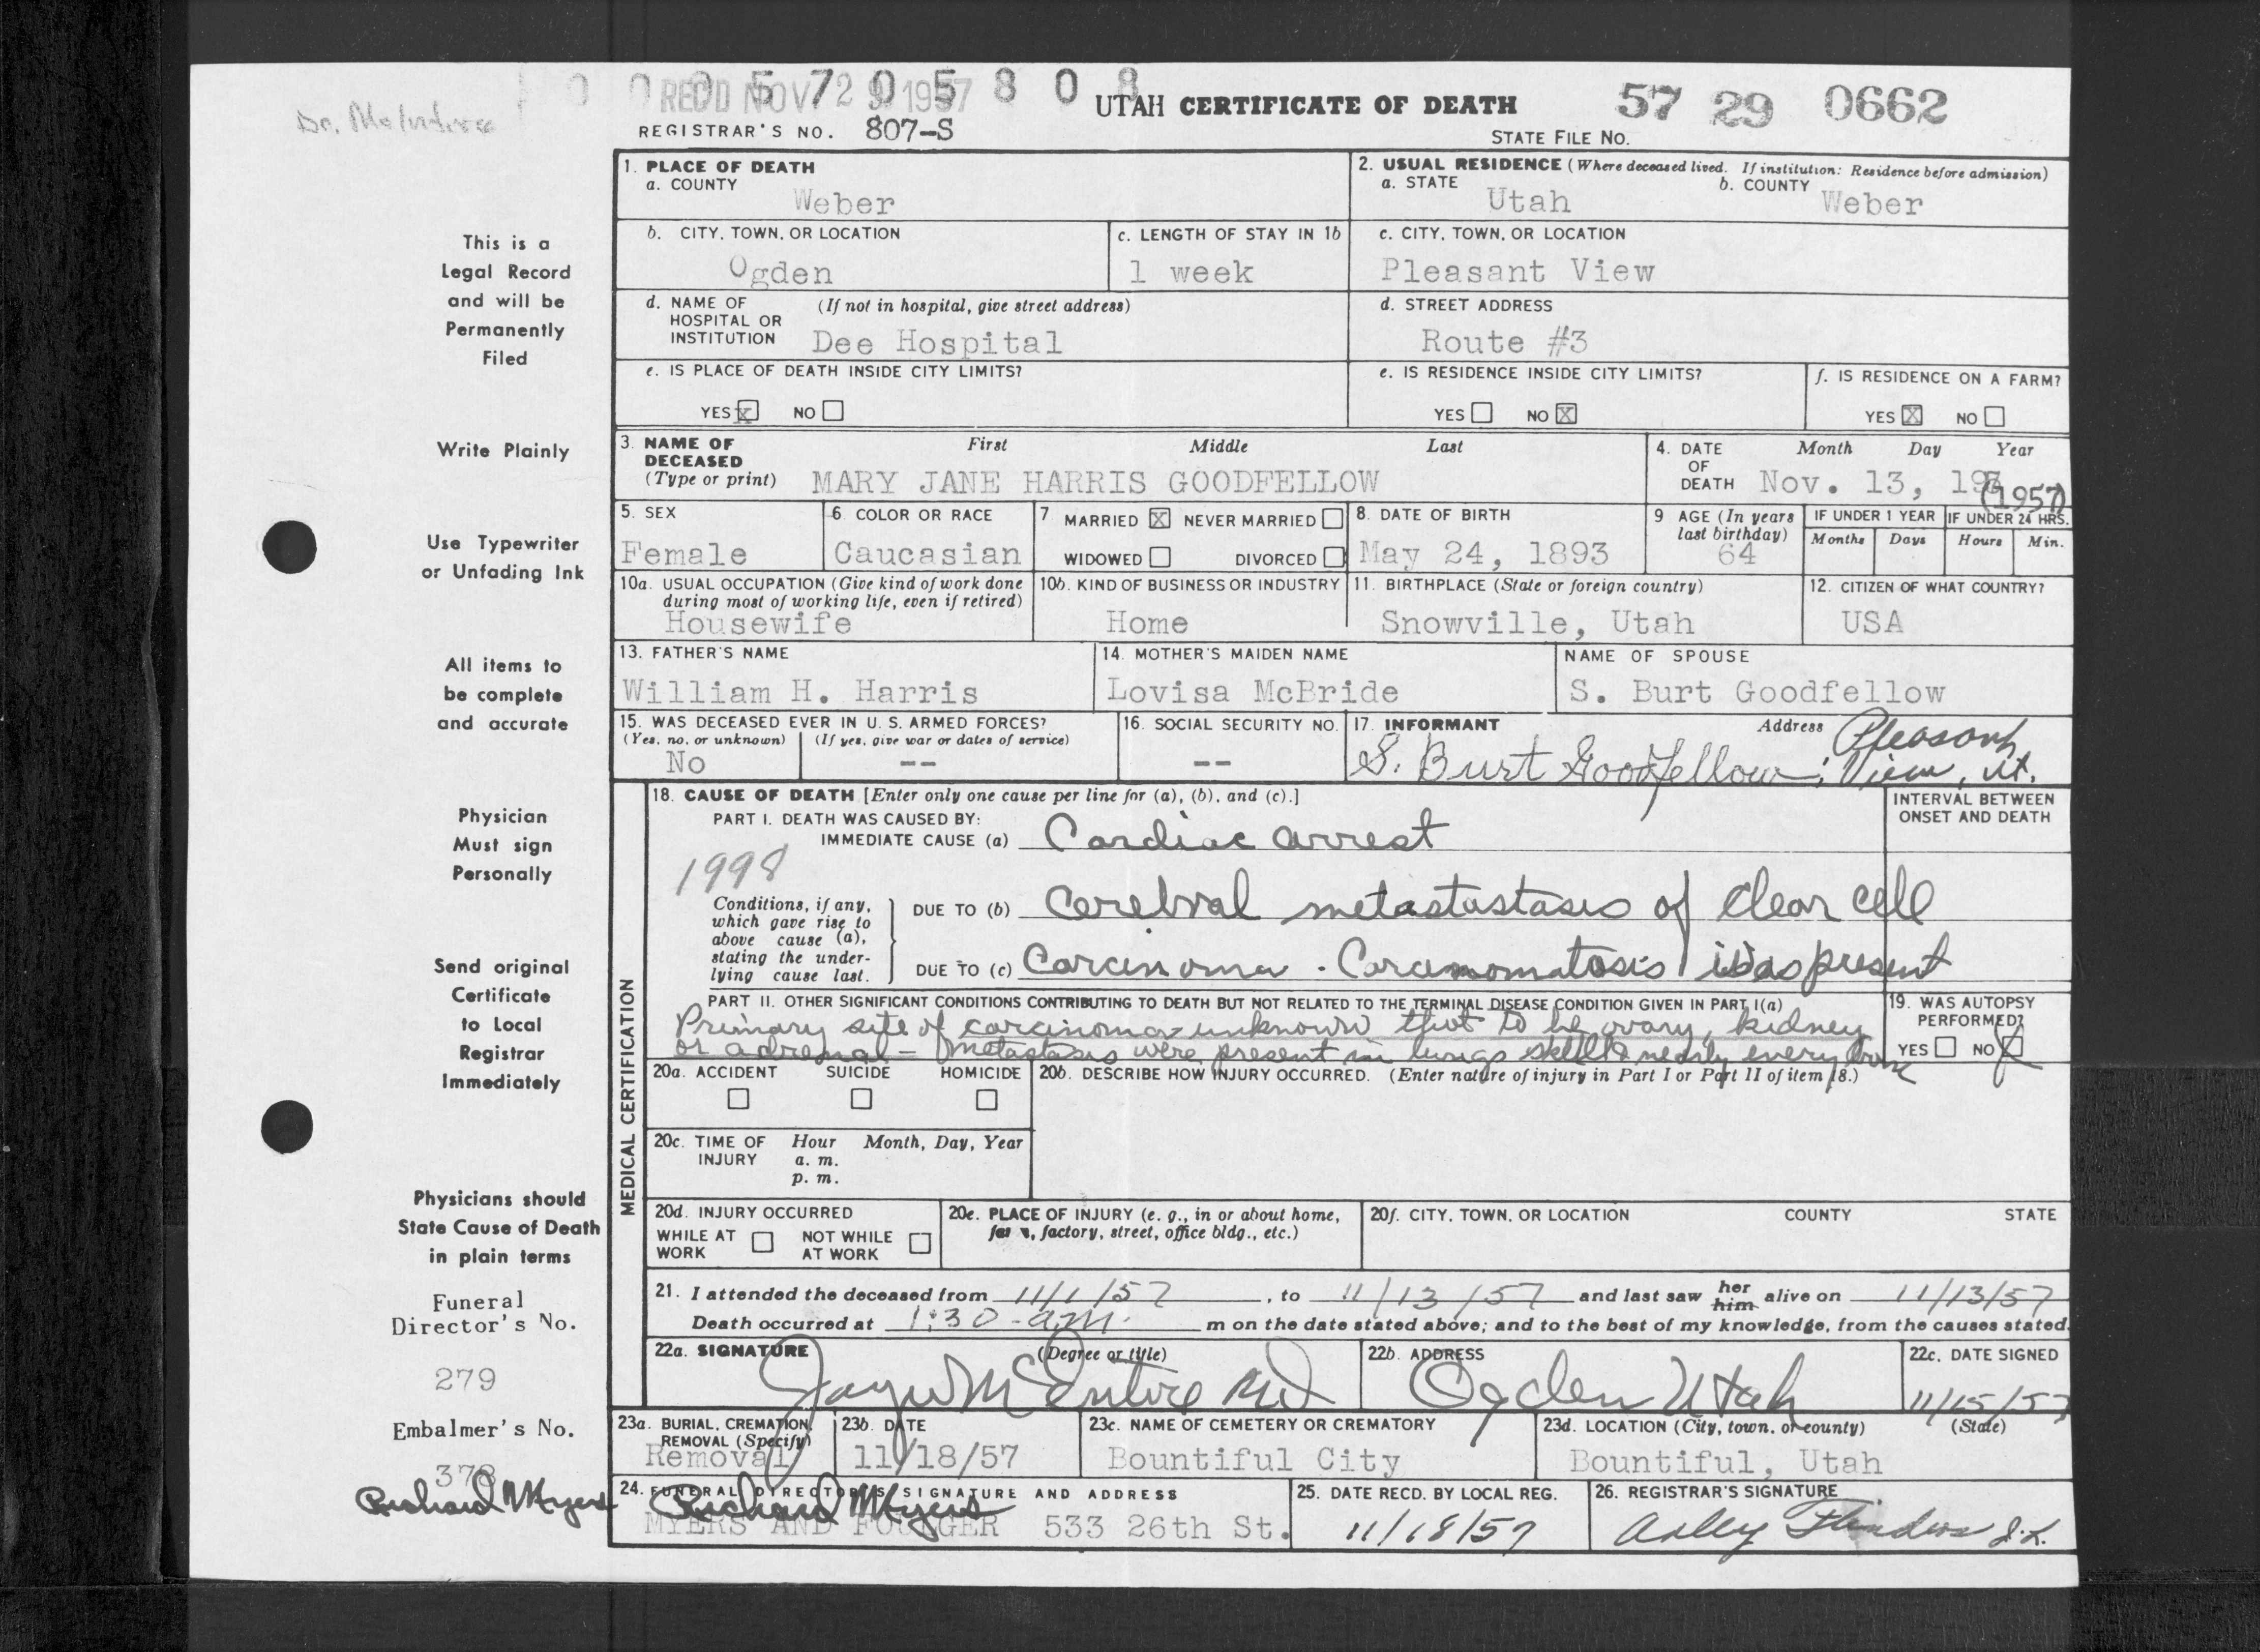 Dr. McIntire
REC'D NOV 29 1957
UTAH CERTIFICATE OF DEATH 57 29 0662
REGISTRAR'S NO. 807-S STATE FILE NO.
This is a
Legal Record
and will be
Permanently
Filed
Write Plainly
Use Typewriter
or Unfading Ink
All items to
be complete
and accurate
Physician
Must sign
Personally
Send original
Certificate
to Local
Registrar
Immediately
Physicians should
State Cause of Death
in plain terms
Funeral
Director's No.
279
Embalmer's No.
378
Richard Myers
1. PLACE OF DEATH
a. COUNTY
Weber
2. USUAL RESIDENCE (Where deceased lived. If institution: Residence before admission)
a. STATE b. COUNTY
Utah Weber
b. CITY, TOWN, OR LOCATION
Ogden
c. LENGTH OF STAY IN 1b
1 week
c. CITY, TOWN, OR LOCATION
Pleasant View
d. NAME OF (If not in hospital, give street address)
HOSPITAL OR
INSTITUTION Dee Hospital
d. STREET ADDRESS
Route #3
e. IS PLACE OF DEATH INSIDE CITY LIMITS?
YES X NO
e. IS RESIDENCE INSIDE CITY LIMITS?
YES NO X
f. IS RESIDENCE ON A FARM?
YES X NO
3. NAME OF First Middle Last
DECEASED
(Type or print) MARY JANE HARRIS GOODFELLOW
4. DATE Month Day Year
OF
DEATH Nov. 13, (1957)
5. SEX
Female
6 COLOR OR RACE
Caucasian
7 MARRIED X NEVER MARRIED
WIDOWED DIVORCED
8. DATE OF BIRTH
May 24, 1893
9 AGE (In years
last birthday)
64
IF UNDER 1 YEAR IF UNDER 24 HRS.
Months Days Hours Min.
10a. USUAL OCCUPATION (Give kind of work done
during most of working life, even if retired)
Housewife
10b. KIND OF BUSINESS OR INDUSTRY
Home
11. BIRTHPLACE (State or foreign country)
Snowville, Utah
12. CITIZEN OF WHAT COUNTRY?
USA
13. FATHER'S NAME
William H. Harris
14. MOTHER'S MAIDEN NAME
Lovisa McBride
NAME OF SPOUSE
S. Burt Goodfellow
15. WAS DECEASED EVER IN U. S. ARMED FORCES?
(Yes, no, or unknown) (If yes, give war or dates of service)
No --
16. SOCIAL SECURITY NO.
--
17. INFORMANT Address Pleasant
S. Burt Goodfellow; View, Ut.
MEDICAL CERTIFICATION
18. CAUSE OF DEATH [Enter only one cause per line for (a), (b), and (c).]
PART I. DEATH WAS CAUSED BY:
IMMEDIATE CAUSE (a) Cardiac arrest
INTERVAL BETWEEN
ONSET AND DEATH
1998
Conditions, if any,
which gave rise to
above cause (a),
stating the under-
lying cause last.
DUE TO (b) Cerebral metastastasis of clear cell
DUE TO (c) Carcinoma. Carcinomatosis was present
PART II. OTHER SIGNIFICANT CONDITIONS CONTRIBUTING TO DEATH BUT NOT RELATED TO THE TERMINAL DISEASE CONDITION GIVEN IN PART I(a)
Primary site of carcinoma unknown to be ovary, kidney
or adrenal - metastasis were present in lungs nearly every bone
19. WAS AUTOPSY
PERFORMED?
YES NO X
20a. ACCIDENT SUICIDE HOMICIDE
20b. DESCRIBE HOW INJURY OCCURRED. (Enter nature of injury in Part I or Part II of item 18.)
20c. TIME OF Hour Month, Day, Year
INJURY a. m.
p. m.
20d. INJURY OCCURRED
WHILE AT NOT WHILE
WORK AT WORK
20e. PLACE OF INJURY (e. g., in or about home,
farm, factory, street, office bldg., etc.)
20f. CITY, TOWN, OR LOCATION COUNTY STATE
21. I attended the deceased from 11/1/57, to 11/13/57 and last saw her him alive on 11/13/57
Death occurred at 1:30 a.m. m on the date stated above; and to the best of my knowledge, from the causes stated.
22a. SIGNATURE (Degree or title)
McEntire MD
22b. ADDRESS
Ogden Utah
22c. DATE SIGNED
11/15/57
23a. BURIAL, CREMATION,
REMOVAL (Specify)
Removal
23b. DATE
11/18/57
23c. NAME OF CEMETERY OR CREMATORY
Bountiful City
23d. LOCATION (City, town, or county) (State)
Bountiful, Utah
24. FUNERAL DIRECTOR'S SIGNATURE AND ADDRESS
Richard Myers
MYERS AND FOULGER 533 26th St.
25. DATE RECD. BY LOCAL REG.
11/18/57
26. REGISTRAR'S SIGNATURE
Arley Flinders J.L.